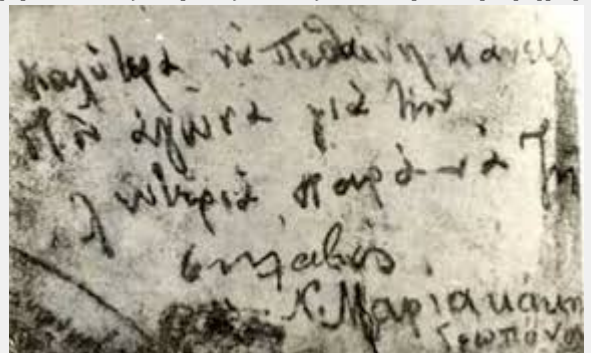 καλύτερα νὰ πεθαίνη κανεὶς
στὸν ἀγῶνα γιὰ τὴν
λευτεριὰ παρὰ νὰ ζῆ
σκλάβος.
Ν. Μαριακάκη